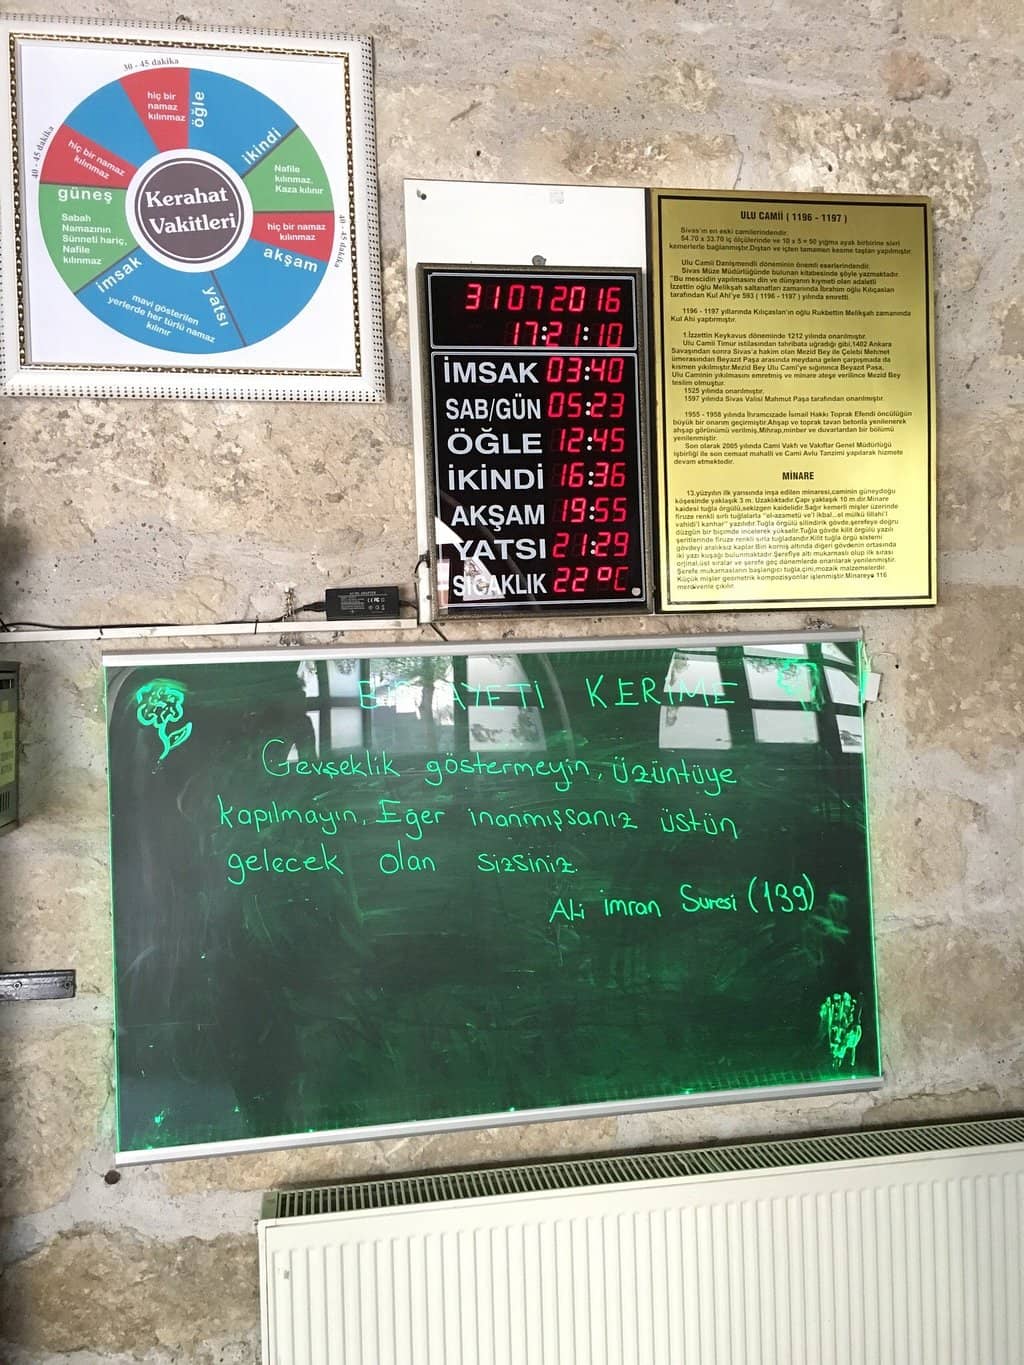 30 - 45 dakika
hiç bir
namaz
kılınmaz
öğle
ikindi
40 - 45 dakika
hiç bir namaz
kılınmaz
güneş
Nafile
kılınmaz.
Kaza kılınır
Kerahat
Vakitleri
Sabah
Namazının
Sünneti hariç,
Nafile
kılınmaz
hiç bir namaz
kılınmaz
40 - 45 dakika
akşam
imsak
yatsı
mavi gösterilen
yerlerde her türlü namaz
kılınır
31 07 2016
17:21:10
İMSAK 03:40
SAB/GÜN 05:23
ÖĞLE 12:45
İKİNDİ 16:36
AKŞAM 19:55
YATSI 21:29
SICAKLIK 22°C
ULU CAMİİ ( 1196 - 1197 )
Sivas'ın en eski camilerindendir.
54.70 x 33.70 iç ölçülerinde ve 10 x 5 = 50 yığma ayak birbirine sivri
kemerlerle bağlanmıştır.Dıştan ve içten tamamen kesme taştan yapılmıştır.
Ulu Camii Danişmendli döneminin önemli eserlerindendir.
Sivas Müze Müdürlüğünde bulunan kitabesinde şöyle yazmaktadır.
"Bu mescidin yapılmasını din ve dünyanın kıymeti olan adaletli
İzzettin oğlu Melikşah saltanatları zamanında İbrahim oğlu Kılıçaslan
tarafından Kul Ahi'ye 593 ( 1196 - 1197 ) yılında emretti.
1196 - 1197 yıllarında Kılıçaslan'ın oğlu Rukbettin Melikşah zamanında
Kul Ahi yaptırmıştır.
1.İzzettin Keykavus döneminde 1212 yılında onarılmıştır.
Ulu Camii Timur istilasından tahribata uğradığı gibi,1402 Ankara
Savaşından sonra Sivas'a hakim olan Mezid Bey ile Çelebi Mehmet
ümerasından Beyazit Paşa arasında meydana gelen çarpışmada da
kısmen yıkılmıştır.Mezid Bey Ulu Cami'ye sığınınca Beyazit Paşa,
Ulu Caminin yıkılmasını emretmiş ve minare ateşe verilince Mezid Bey
teslim olmuştur.
1525 yılında onarılmıştır.
1597 yılında Sivas Valisi Mahmut Paşa tarafından onarılmıştır.
1955 - 1958 yılında İhramcızade İsmail Hakkı Toprak Efendi öncülüğün
büyük bir onarım geçirmiştir.Ahşap ve toprak tavan betonla yenilenerek
ahşap görünümü verilmiş,Mihrap,minber ve duvarlardan bir bölümü
yenilenmiştir.
Son olarak 2005 yılında Cami Vakfı ve Vakıflar Genel Müdürlüğü
işbirliği ile son cemaat mahalli ve Cami Avlu Tanzimi yapılarak hizmete
devam etmektedir.
MİNARE
13.yüzyılın ilk yarısında inşa edilen minaresi,caminin güneydoğu
köşesinde yaklaşık 3 m. Uzaklıktadır.Çapı yaklaşık 10 m.dir.Minare
kaidesi tuğla örgülü,sekizgen kaidelidir.Sağır kemerli mişler üzerinde
firuze renkli sırlı tuğlalarla "el-azametü ve'l ikbal...el mülkü lillahi'l
vahidi'l kanhar" yazılıdır.Tuğla örgülü silindirik gövde,şerefeye doğru
düzgün bir biçimde incelerek yükselir.Tuğla gövde kilit örgülü yazılı
şeritlerinde firuze renkli sırla tuğladandır.Kilit tuğla örgü sistemi
gövdeyi aralıksız kaplar.Bin kornış altında diğeri gövdenin ortasında
iki yazı kuşağı bulunmaktadır.Şerefiye altı mukarnaslı olup ilk sırası
orjinal,üst sıralar ve şerefe geç dönemlerde onarılarak yenilenmiştir.
Şerefe mukarnasların başlangıcı tuğla,çini,mozaik malzemelerdir
Küçük mişler geometrik kompozisyonlar işlenmiştir.Minareye 116
merdivenle çıkılır.
BİR AYETİ KERİME
Gevşeklik göstermeyin, üzüntüye
kapılmayın, Eğer inanmışsanız üstün
gelecek olan sizsiniz.
Ali imran Suresi (139)